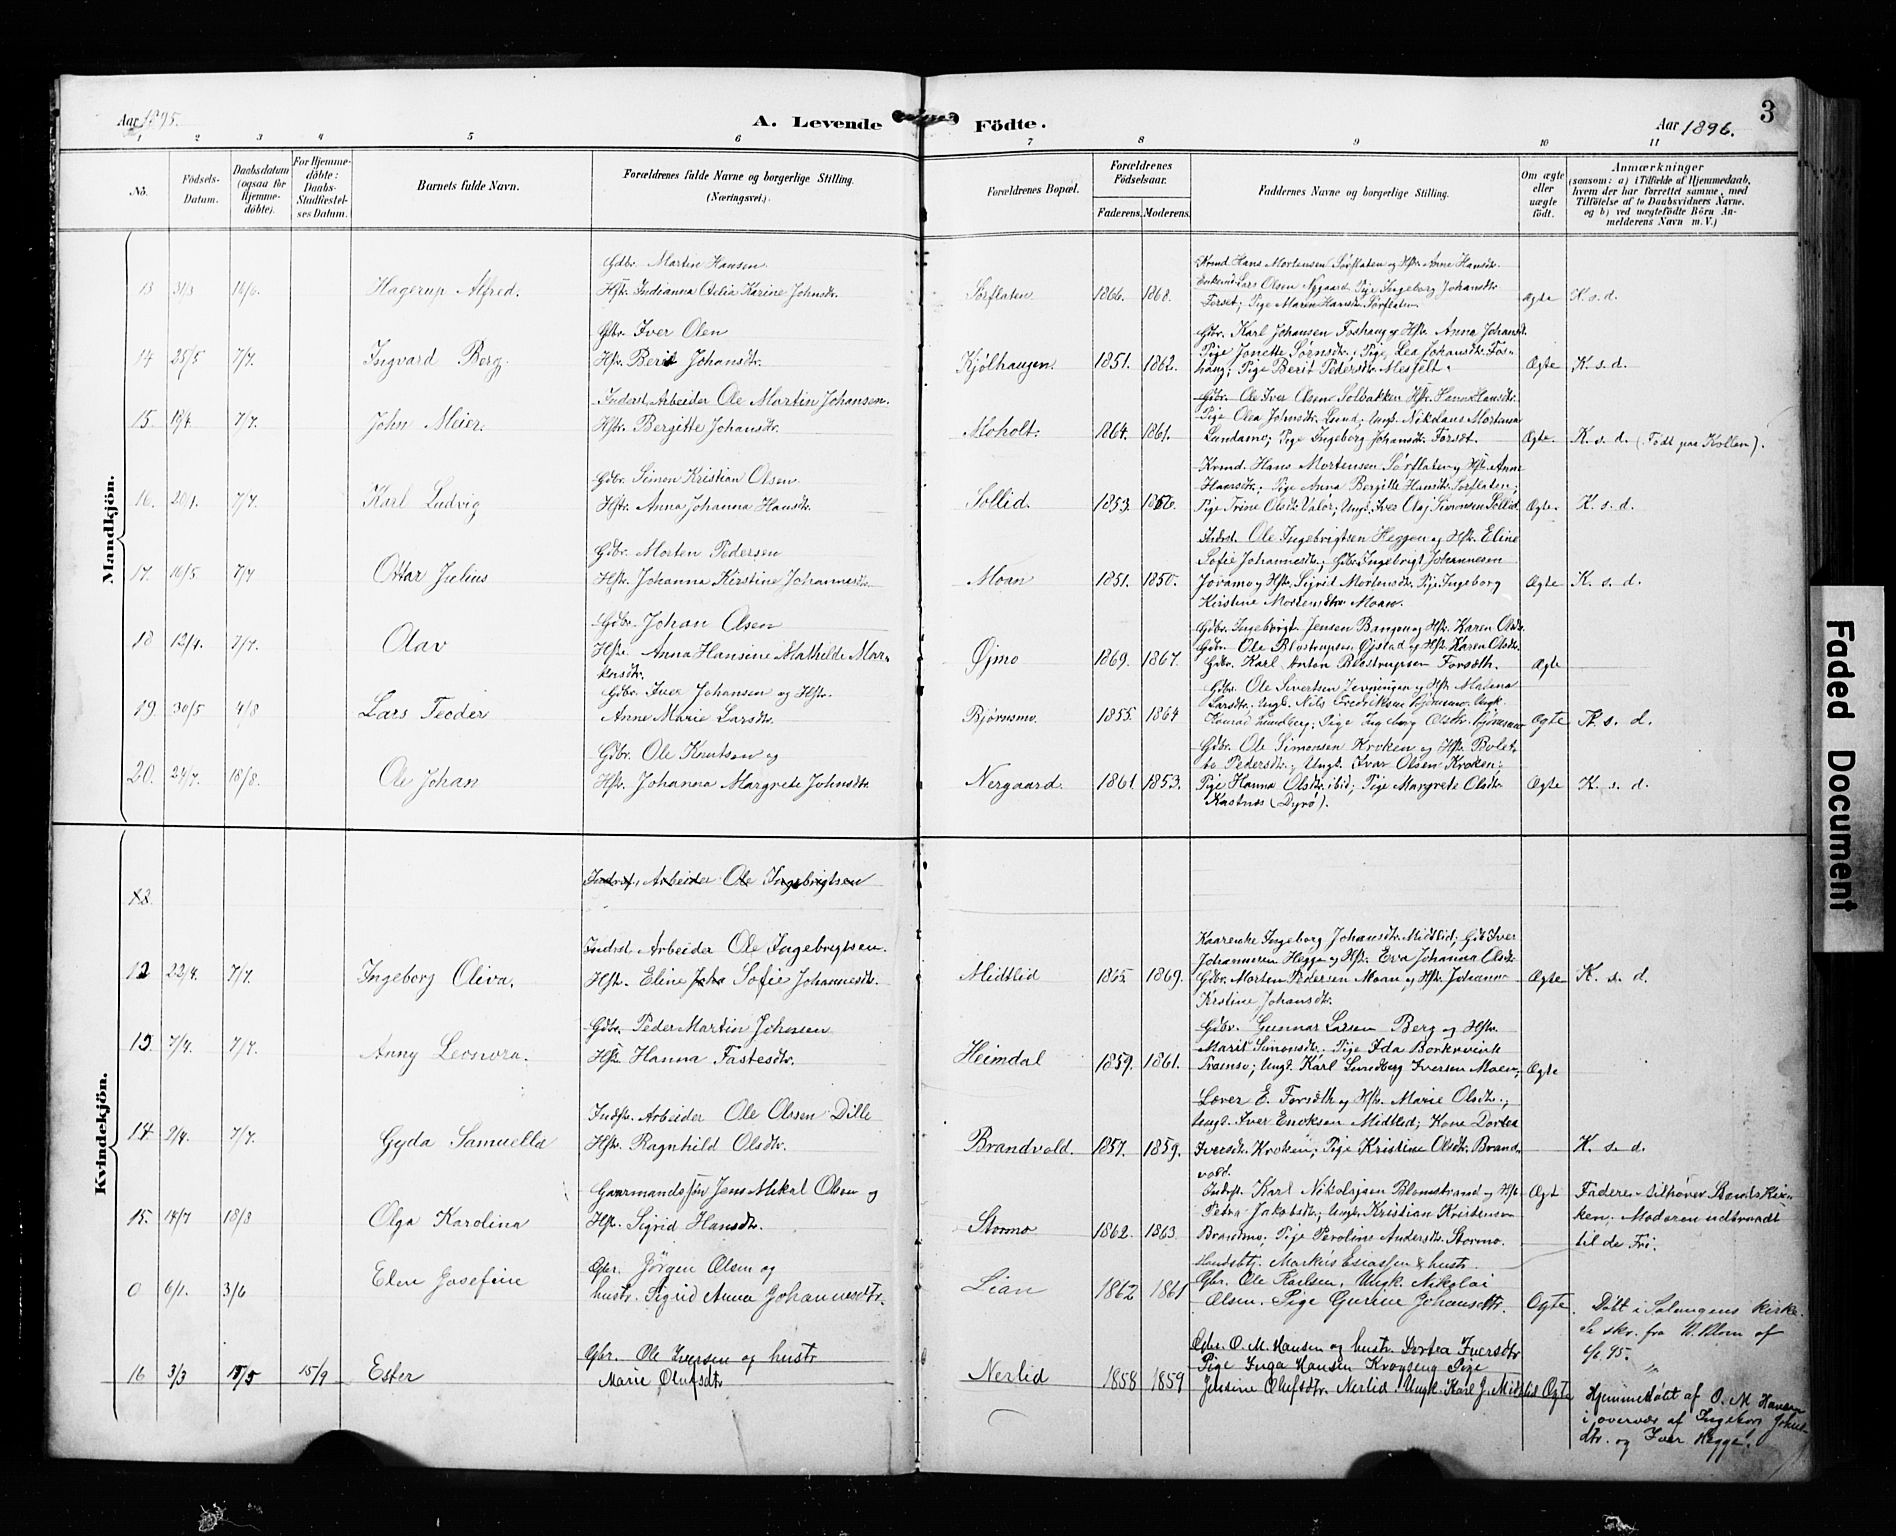 Aar 1895.
A. Levende Födte.
Aar 1896.
3
1 2 3 4 5 6 7 8 9 10 11
No.
Födsels-Datum.
Daabsdatum (ogsaa för Hjemme-döbte).
For Hjemme-döbte: Daabs-Stadfæstel-ses Datum.
Barnets fulde Navn.
Forældrenes fulde Navne og borgerlige Stilling.
(Næringsvei.)
Forældrenes Bopæl.
Forældrenes Födselsaar.
Faderens. Moderens.
Faddernes Navne og borgerlige Stilling.
Om ægte eller uægte födt.
Anmærkninger
(saasom: a) i Tilfælde af Hjemmedaab,
hvem der har forrettet samme, med
Tilföielse af to Daabsvidners Navne.
og b) ved uægtefödte Börn An-
melderens Navn m. V.)
Mandkjön.
Gdbr. Martin Hansen
13 31/3 16/6. Hagerup Alfred. Hstr. Indianna Otelia Karine Johnsdtr. Sørflaten 1866. 1868.
Kvmd. Hans Mortensen Sørflaten og Hstr. Anne Hansdtr.
Enkemd. Lars Olsen Nygaard. Pige Ingeborg Johansdtr.
Forset; Pige Maren Hansdtr. Sørflaten
Ægte K. s. d.
Gdbr. Iver Olsen
14 25/5 7/7. Ingvard Berg. Hstr. Berit Johansdtr. Kjølhaugen. 1851. 1862.
Gdbr. Karl Johansen Forshaug og Hstr. Anna Johansdtr.
Pige Jonette Sørnsdtr.; Pige Lea Johansdtr. Fors-
haug; Pige Berit Pedersdtr. Mesfelt.
Ægte K. s. d.
Inderst, Arbeider Ole Martin Johansen.
15. 19/4. 7/7. John Meier. Hstr. Bergitte Johansdtr. Moholt. 1864. 1861.
Gdbr. Ole Iver Olsen Solbakken Hstr. Hanna Hansdtr.
Pige Olea Johnsdtr. Lund; Ungk. Nikolaus Mortensen
Lundamo; Pige Ingeborg Johansdtr. Forset.
Ægte. K. s. d. (Født paa Kollen).
Gdbr. Simon Kristian Olsen
16. 20/1. 7/7. Karl Ludvig Hstr. Anna Johanna Hansdtr. Sollid. 1853. 1856.
Kvmd. Hans Mortensen Sørflaten og Hstr. Anne
Hansdtr.; Pige Anna Bergitte Hansdtr. Sørflaten;
Pige Trine Olsdtr. Valør; Ungk. Iver Olaj Simonsen Sollid.
Ægte. K. s. d.
Gdbr. Morten Pedersen
17. 16/5 7/7 Ottar Julius Hstr. Johanna Kirstine Johannesdtr. Moan 1851. 1850.
Inderst. Ole Ingebrigtsen Heggen og Hstr. Eline
Sofie Johannesdtr.; Gdbr. Ingebrigt Johannesen
Joramo og Hstr. Sigrid Mortensdtr. Pige Ingeborg
Kirstine Mortensdtr. Moan.
Ægte K. s. d.
Gdbr. Johan Olsen
18 12/4. 7/7. Olav Hstr. Anna Hansine Mathilde Mar-
kusdtr.
Øjmo 1869. 1867.
Gdbr. Ingebrigt Jensen Bangen og Hstr. Karen Olsdtr.
Gdbr. Ole Blostrupsen Øjstad og Hstr. Karen Olsdtr.
Gdbr. Karl Anton Blostrupsen Forseth.
Ægte
Gdbr. Iver Johansen og Hstr.
19. 30/5 4/8 Lars Teoder Anne Marie Larsdtr. Bjørnsmo. 1855. 1864
Gdbr. Ole Sivertsen Jevningen og Hstr. Malena
Larsdtr. Ungk. Nils Fredriksen Bjørnsmo. Ungk.
Konrad Lundberg; Pige Ingeborg Olsdtr. Bjørnsmo
Ægte K. s. d.
Gdbr. Ole Knutsen og
20. 24/7. 18/8. Ole Johan Hstr. Johanna Margrete Johnsdtr. Nergaard. 1861. 1853.
Gdbr. Ole Simonsen Kroken og Hstr. Bolet-
te Pedersdtr.; Ungk. Ivar Olsen Kroken;
Pige Hanna Olsdtr. ibid; Pige Margrete Olsdtr.
Kastnes (Dyrø).
Ægte K. s. d.
Kvindekjön.
Inderst, Arbeider Ole Ingebrigtsen
Indrst. Arbeider Ole Ingebrigtsen.
12 22/4. 7/7. Ingeborg Oliva. Hstr. Eline Joha Sofie Johannesdtr. Midtlid 1865. 1869.
Kaarenke Ingeborg Johansdtr. Midtlid; Gdb. Iver
Johannesen Hegge og Hstr. Eva Johanna Olsdtr.
Gdbr. Morten Pedersen Moan og Hstr. Johanna
Kristine Johansdtr.
Ægte K. s. d.
Gdbr. Peder Martin Johnsen
13. 7/4. 7/7. Anny Leonora. Hstr. Hanna Fastesdtr. Heimdal 1859. 1861.
Gdbr. Gunnar Larsen Berg og Hstr.
Marit Simonsdtr.; Pige Ida Borkrevik
Tromsø; Ungk. Karl Lundberg Iversen Moen;
Ægte
Indst. Arbeider Ole Olssen Dille
14. 2/4. 7/7. Gyda Samuella Hstr. Ragnhild Olsdtr. Brandvold. 1857. 1859.
Lærer E. Forseth og Hstr. Marie Olsdtr.;
Ungk. Iver Enoksen Midtlid; Kone Dortea
Iversdtr. Kroken; Pige Kristine Olsdtr. Brand-
vold.
K. s. d.
Gaarmandssøn Jens Mikal Olsen og
15. 14/7 18/8 Olga Karolina Hstr. Sigrid Hansdtr. Stormo 1862. 1863.
Indrst. Karl Nikolajsen Blomstrand og Hstr.
Petra Jakobsdtr.; Ungk. Kristian Kristensen
Brandmo; Pige Peroline Andersdtr. Stormo.
Ægt Faderen tilhører Bards Kir-
ken. Moderen udtraadt
til de Fri.
Gbr. Jörgen Olsen og
0 6/1. 3/6 Elen Josefine hustr. Sigrid Anna Johannesdtr. Lian 1862 1861
Handelsbtj. Markus Esiassen & hustr.
Gbr. Ole Karlsen, Ungk. Nikolai
Olsen. Pige Gurine Johansdtr.
Ogte Döbt i Salangens kirke.
Se skr. fra V. Blom af
6/6 95.
Gbr. Ole Iversen og hustr
16 3/3 15/5 15/9 Ester Marie Olufsdtr Nerlid 1858 1859
Gbr. O. M. Hansen og hustr. Dortea Iversdtr
Pige Inga Hansen Kroyseng Pige
Justine Olufsdtr. Nerlid. Ungk. Karl J. Midtlid
Ogte Hjemmedöbt af O. M. Hansen
i overvær af Ingebor Johns-
dtr. og Iver Hegge.
Faded Document